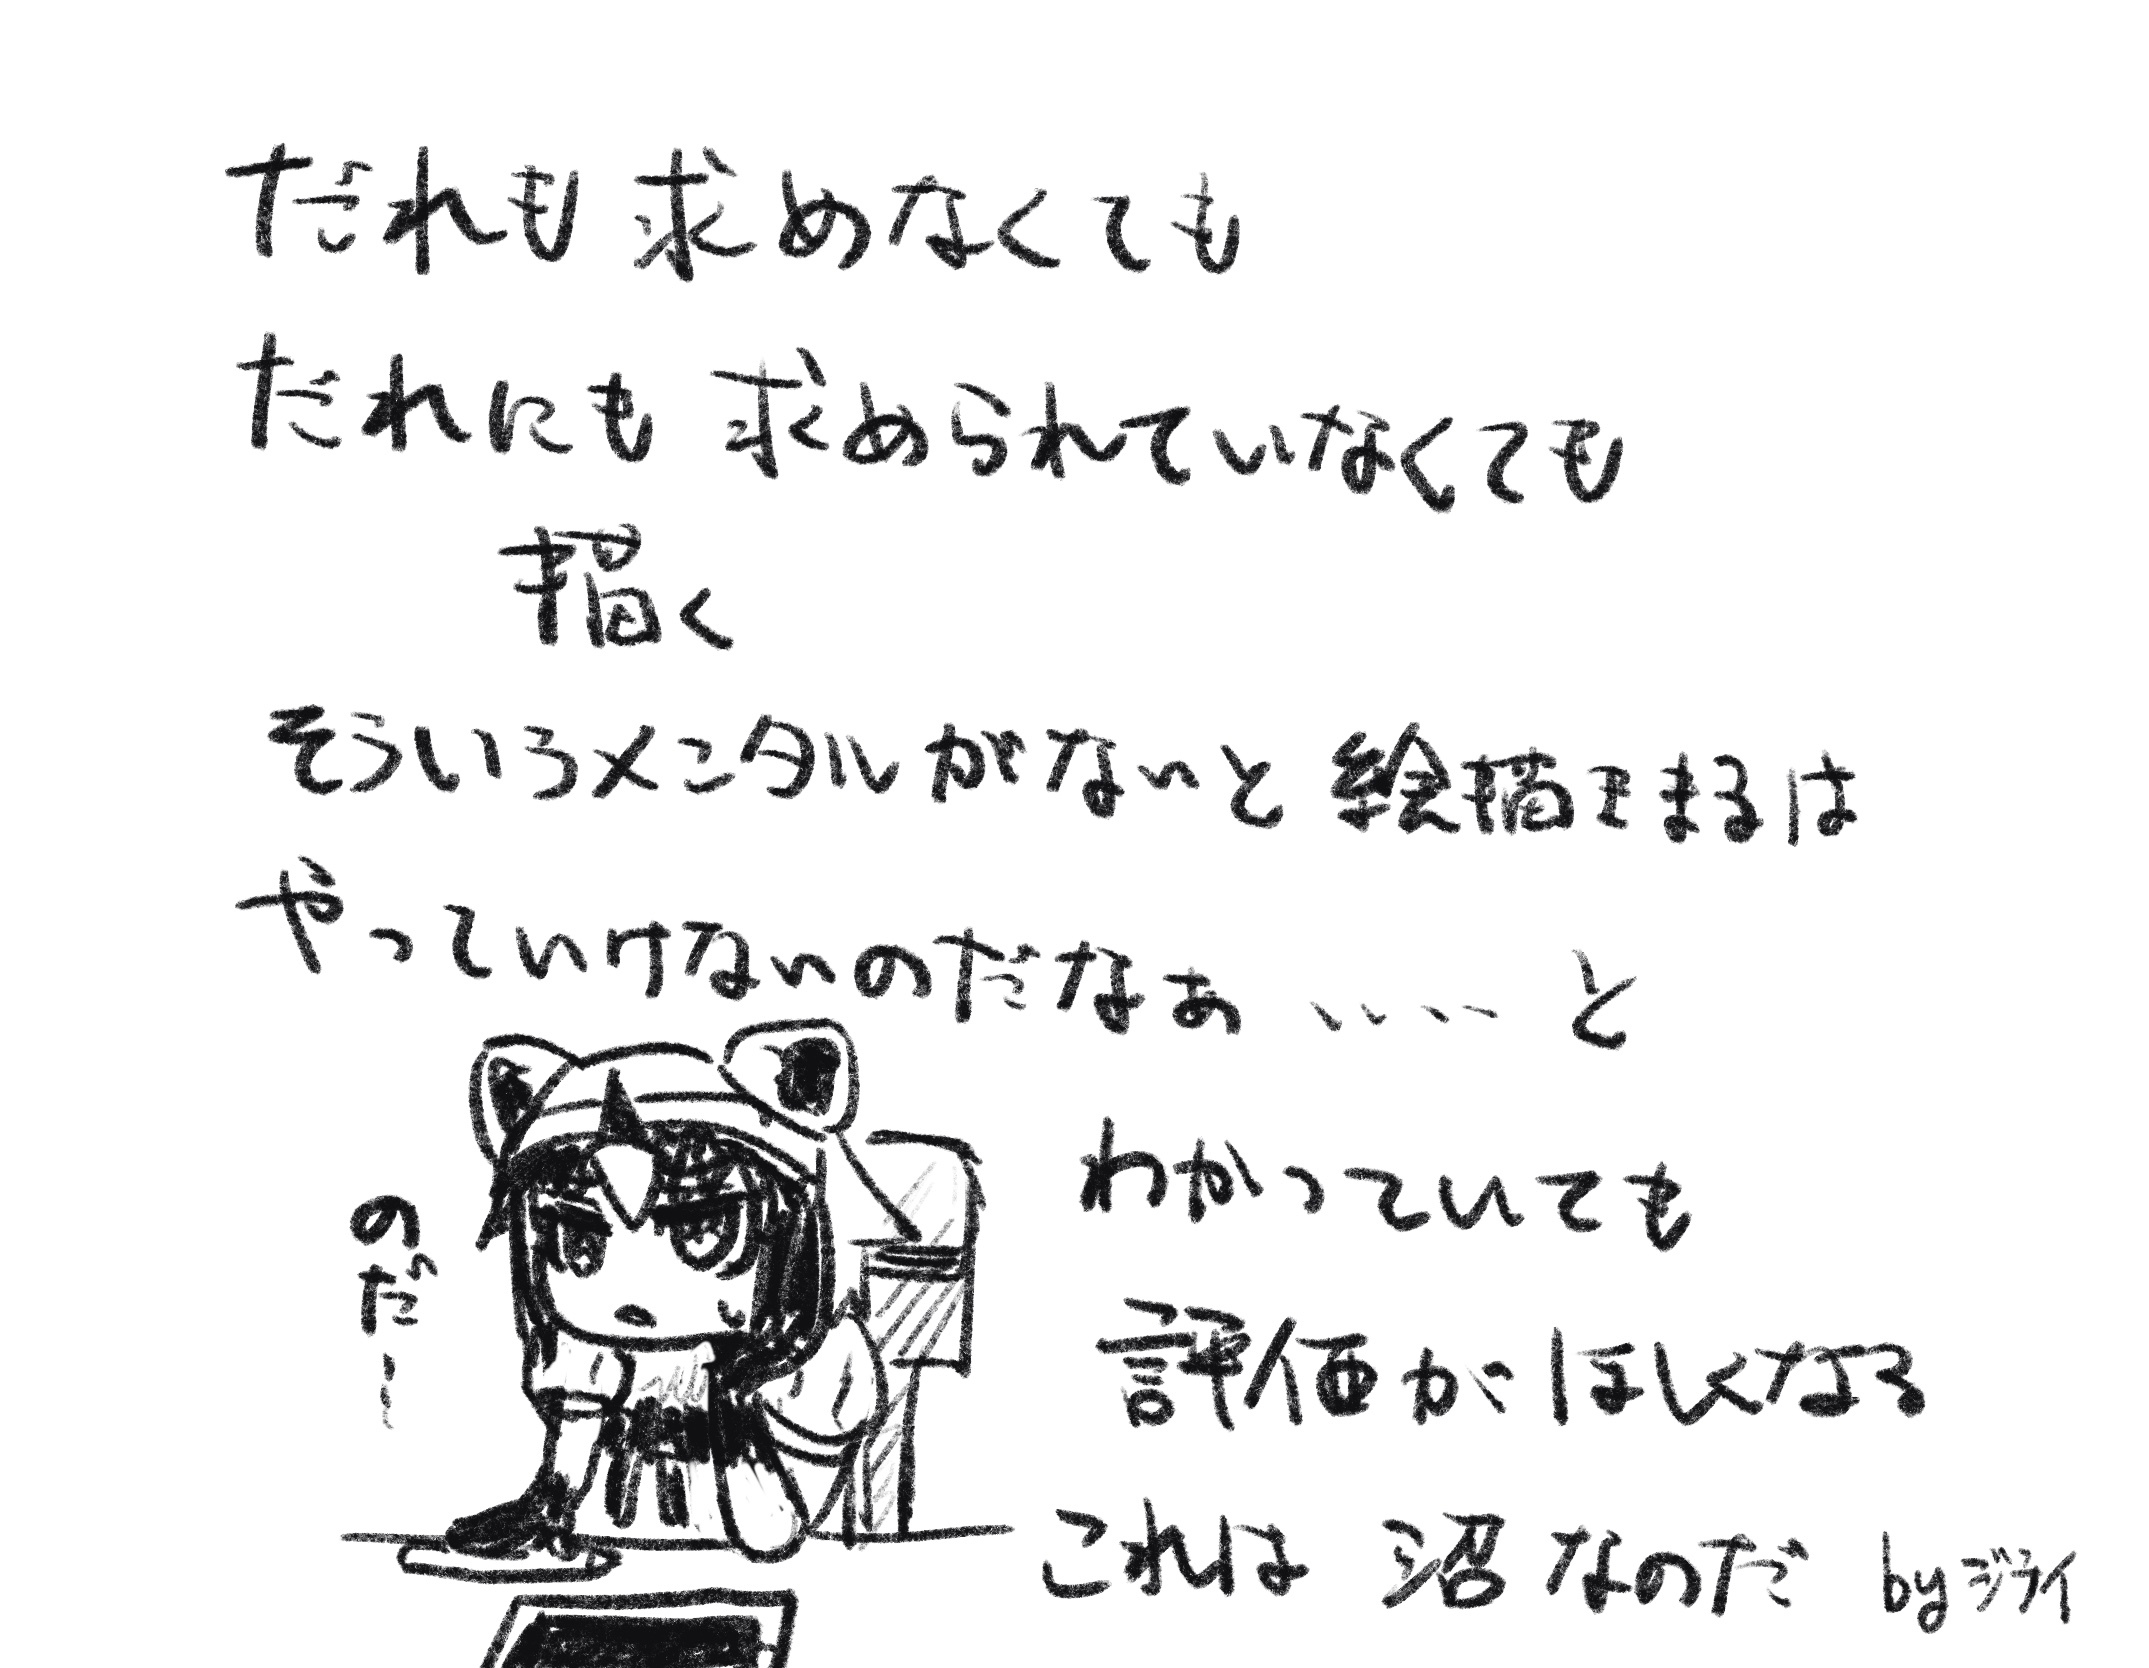 だれも求めなくても
だれにも求められていなくても
描く
そういうメンタルがないと絵描きまるは
やっていけないのだなぁ‥‥と
のだ…
わかっていても
評価がほしくなる
これは沼なのだ byジライ